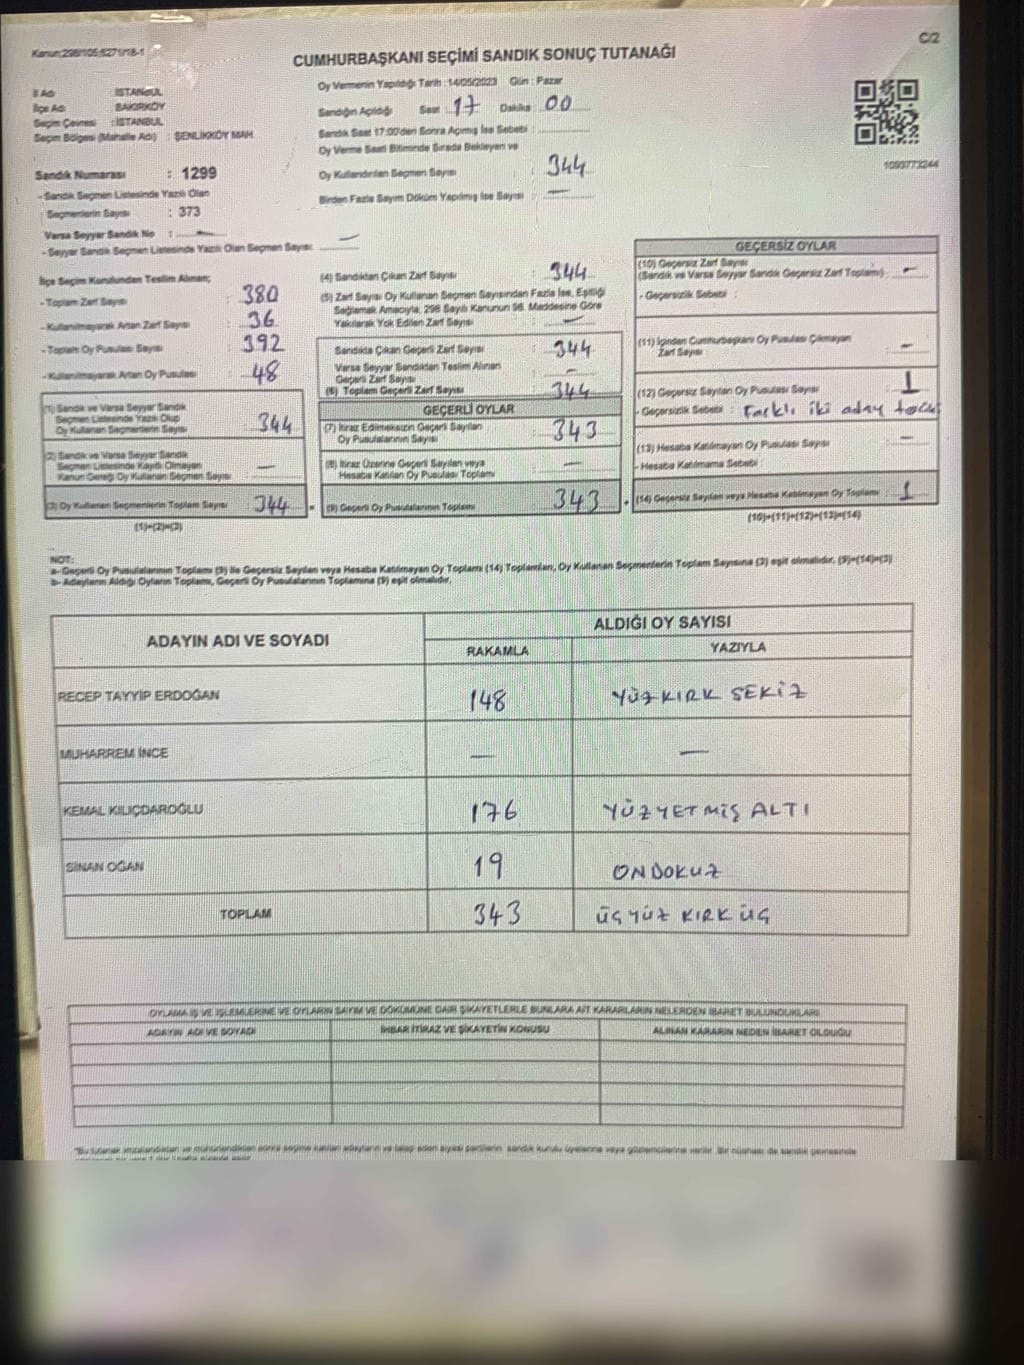 Kanun:298/105;6271/18-1
C/2
CUMHURBAŞKANI SEÇİMİ SANDIK SONUÇ TUTANAĞI
İl Adı : İSTANBUL
İlçe Adı : BAKIRKÖY
Seçim Çevresi : İSTANBUL
Seçim Bölgesi (Mahalle Adı) : ŞENLİKKÖY MAH.
Sandık Numarası : 1299
- Sandık Seçmen Listesinde Yazılı Olan
Seçmenlerin Sayısı : 373
Varsa Seyyar Sandık No : —
- Seyyar Sandık Seçmen Listesinde Yazılı Olan Seçmen Sayısı: —
Oy Vermenin Yapıldığı Tarih : 14/05/2023 Gün : Pazar
Sandığın Açıldığı Saat : 17 Dakika : 00
Sandık Saat 17:00'den Sonra Açımış İse Sebebi :
Oy Verme Saati Bitiminde Sırada Bekleyen ve
Oy Kullandırılan Seçmen Sayısı : 344
Birden Fazla Sayım Döküm Yapılmış İse Sayısı : —
1093773244
İlçe Seçim Kurulundan Teslim Alınan;
- Toplam Zarf Sayısı : 380
- Kullanılmayarak Artan Zarf Sayısı : 36
- Toplam Oy Pusulası Sayısı : 392
- Kullanılmayarak Artan Oy Pusulası : 48
(1) Sandık ve Varsa Seyyar Sandık
Seçmen Listesinde Yazılı Olup
Oy Kullanan Seçmenlerin Sayısı : 344
(2) Sandık ve Varsa Seyyar Sandık
Seçmen Listesinde Kayıtlı Olmayan
Kanun Gereği Oy Kullanan Seçmen Sayısı : —
(3) Oy Kullanan Seçmenlerin Toplam Sayısı : 344
(1)+(2)=(3)
(4) Sandıktan Çıkan Zarf Sayısı : 344
(5) Zarf Sayısı Oy Kullanan Seçmen Sayısından Fazla İse, Eşitliği
Sağlamak Amacıyla, 298 Sayılı Kanunun 98. Maddesine Göre
Yakılarak Yok Edilen Zarf Sayısı : —
Sandıkta Çıkan Geçerli Zarf Sayısı : 344
Varsa Seyyar Sandıktan Teslim Alınan
Geçerli Zarf Sayısı : —
(6) Toplam Geçerli Zarf Sayısı : 344
GEÇERLİ OYLAR
(7) İtiraz Edilmeksizin Geçerli Sayılan
Oy Pusulalarının Sayısı : 343
(8) İtiraz Üzerine Geçerli Sayılan veya
Hesaba Katılan Oy Pusulası Toplamı : —
(9) Geçerli Oy Pusulalarının Toplamı : 343
GEÇERSİZ OYLAR
(10) Geçersiz Zarf Sayısı
(Sandık ve Varsa Seyyar Sandık Geçersiz Zarf Toplamı) : —
- Geçersizlik Sebebi :
(11) İçinden Cumhurbaşkanı Oy Pusulası Çıkmayan
Zarf Sayısı : —
(12) Geçersiz Sayılan Oy Pusulası Sayısı : 1
- Geçersizlik Sebebi : Farklı iki aday
(13) Hesaba Katılmayan Oy Pusulası Sayısı : —
- Hesaba Katılmama Sebebi :
(14) Geçersiz Sayılan veya Hesaba Katılmayan Oy Toplamı : 1
(10)+(11)+(12)+(13)=(14)
NOT:
a- Geçerli Oy Pusulalarının Toplamı (9) ile Geçersiz Sayılan veya Hesaba Katılmayan Oy Toplamı (14) Toplamları, Oy Kullanan Seçmenlerin Toplam Sayısına (3) eşit olmalıdır. (9)+(14)=(3)
b- Adayların Aldığı Oyların Toplamı, Geçerli Oy Pusulalarının Toplamına (9) eşit olmalıdır.
ADAYIN ADI VE SOYADI ALDIĞI OY SAYISI
RAKAMLA YAZIYLA
RECEP TAYYİP ERDOĞAN 148 YÜZ KIRK SEKİZ
MUHARREM İNCE — —
KEMAL KILIÇDAROĞLU 176 YÜZYETMİŞ ALTI
SİNAN OĞAN 19 ONDOKUZ
TOPLAM 343 ÜÇ YÜZ KIRK ÜÇ
OYLAMA İŞ VE İŞLEMLERİNE VE OYLARIN SAYIM VE DÖKÜMÜNE DAİR ŞİKAYETLERLE BUNLARA AİT KARARLARIN NELERDEN İBARET BULUNDUKLARI
ADAYIN ADI VE SOYADI İHBAR İTİRAZ VE ŞİKAYETİN KONUSU ALINAN KARARIN NEDEN İBARET OLDUĞU
*Bu tutanak imzalandıktan ve mühürlendikten sonra seçime katılan adayların ve talep eden siyasi partilerin sandık kurulu üyelerine veya gözlemcilerine verilir. Bir nüshası da sandık çevresinde